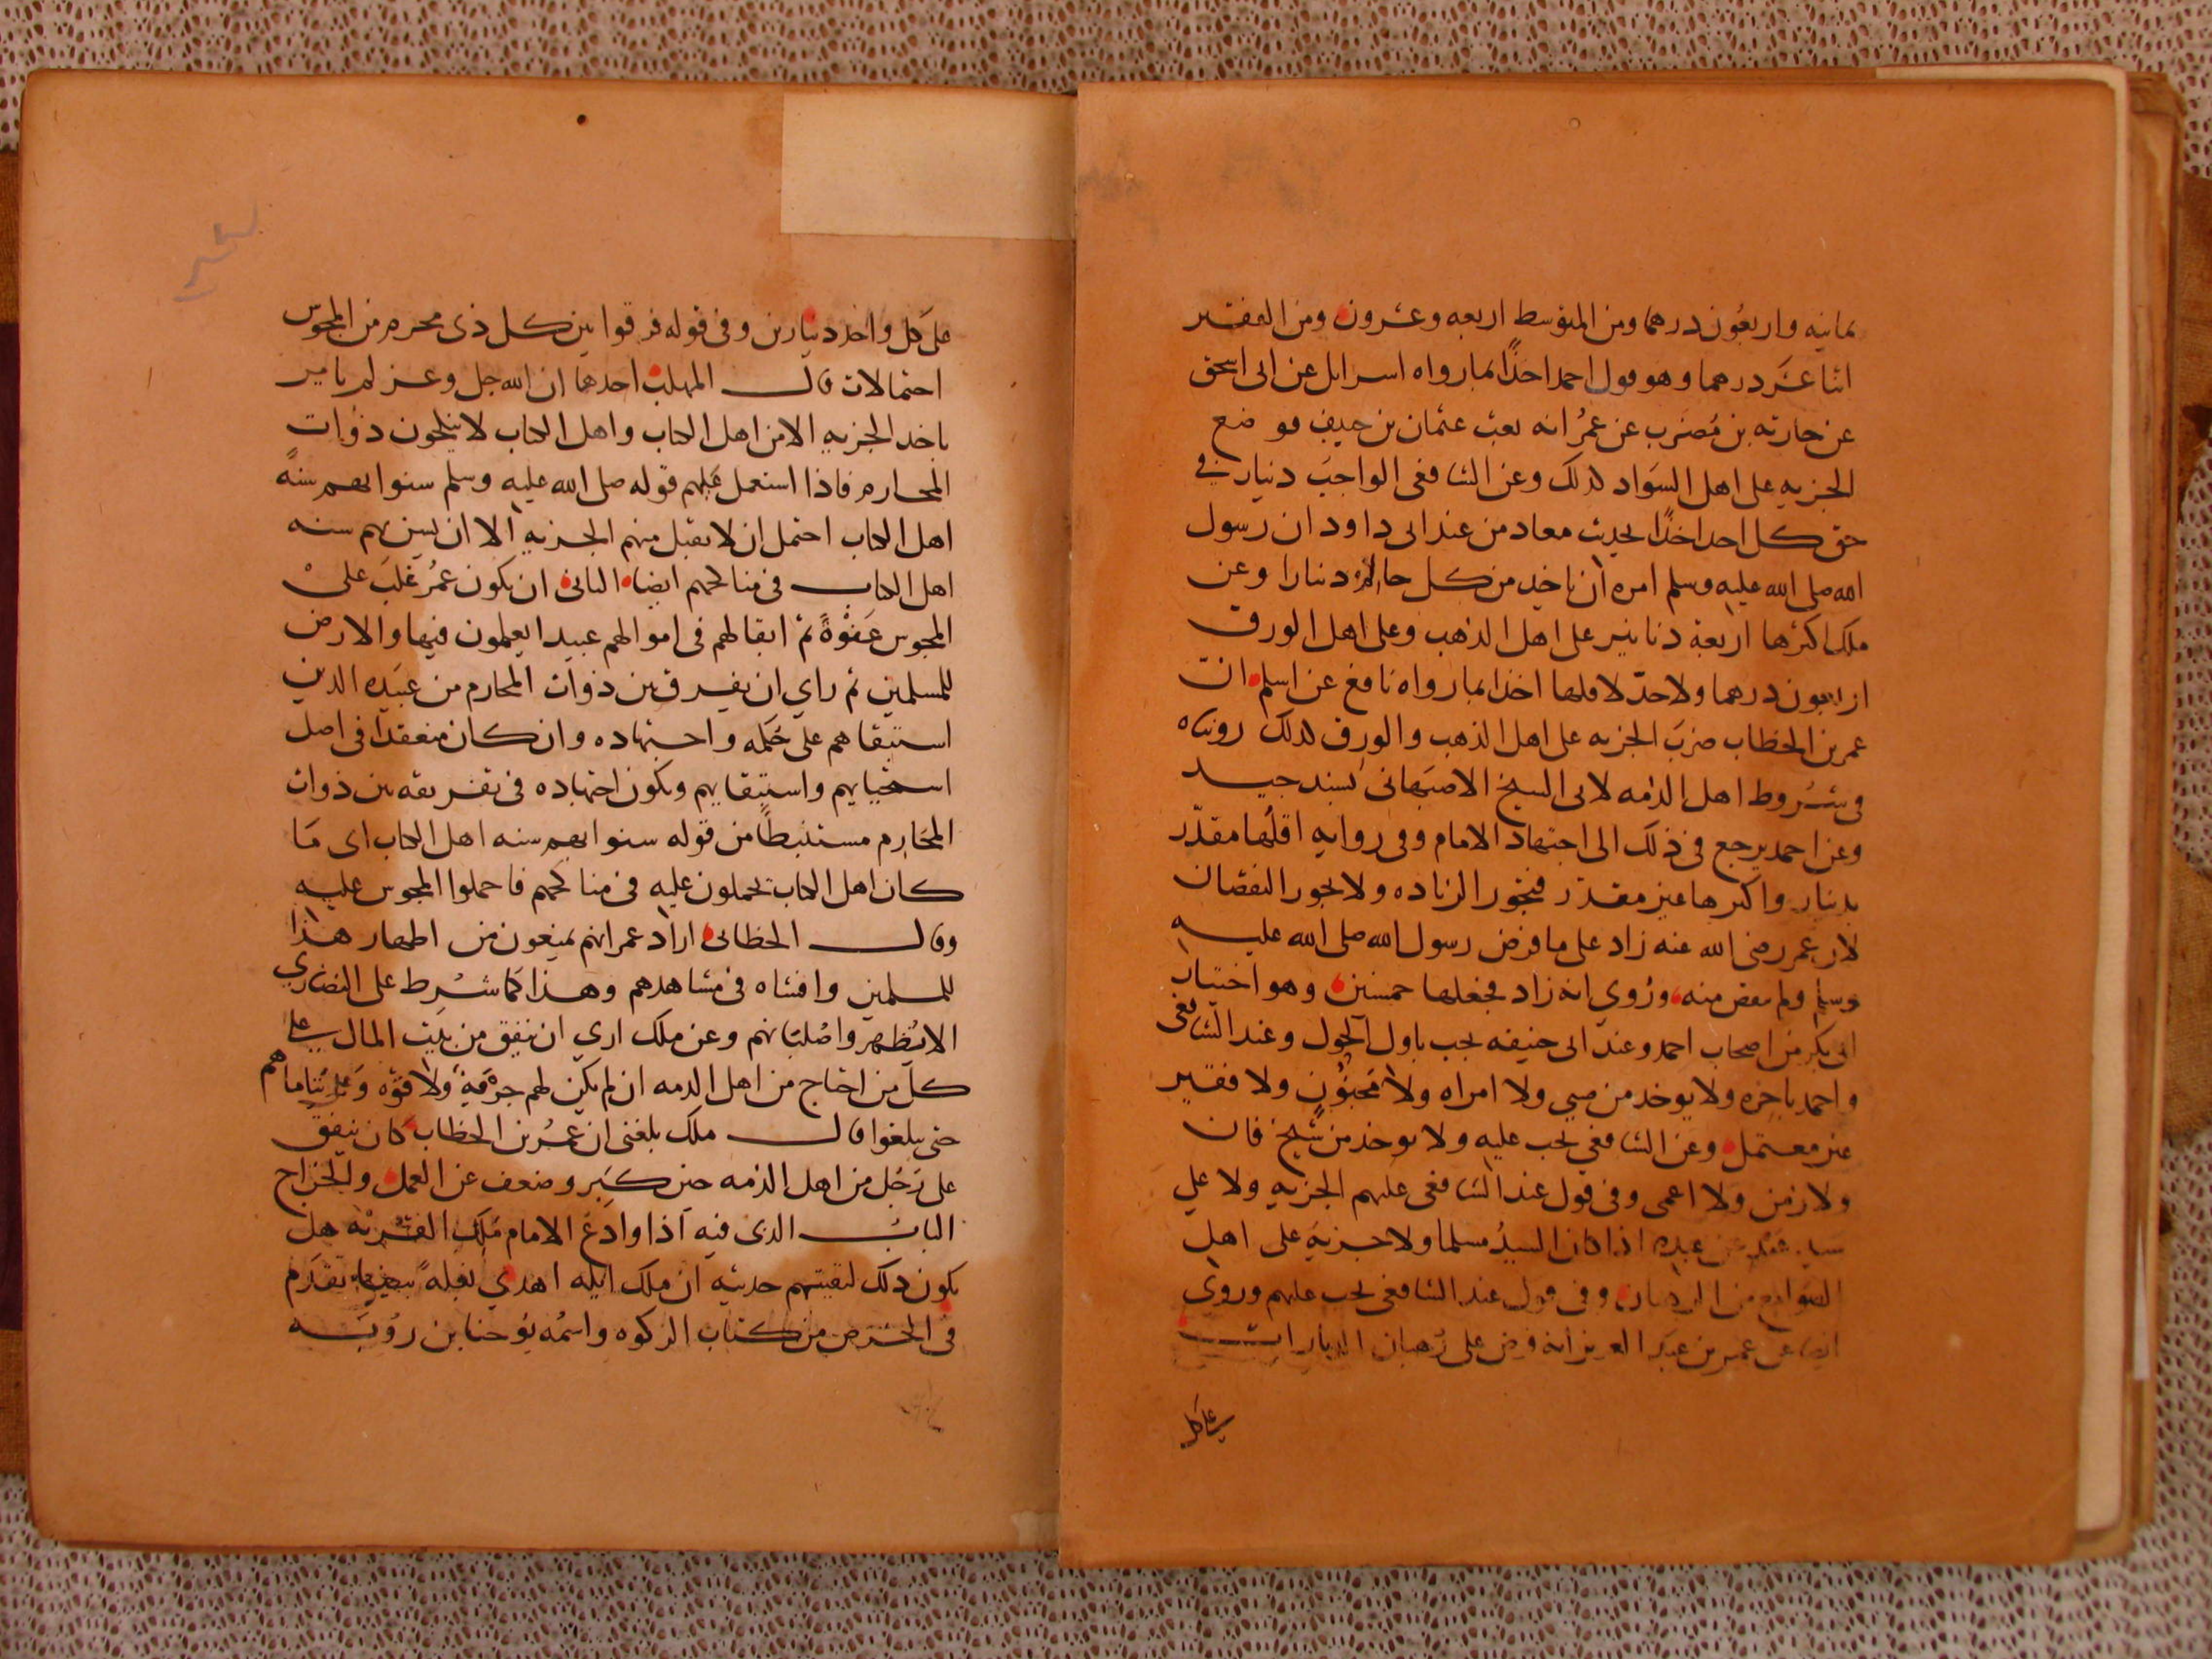 ثمانيه واربعون درهما ومن المتوسط اربعه وعشرون ومن الفقير
اثنا عشر درهما وهو قول احمد اخذا بما رواه اسرايل عن ابي اسحق
عن حارثه بن مضرب عن عمر انه بعث عثمان بن حنيف فوضع
الجزيه على اهل السواد لذلك وعن الشافعي الواجب دينار في
حق كل احد اخذا بحديث معاد من عند ابي داود ان رسول
الله صلى الله عليه وسلم امره ان ياخد من كل حالم دينارا وعن
ملك اكثرها اربعة دنانير على اهل الذهب وعلى اهل الورق
اربعون درهما ولا حد لاقلها اخذا بما رواه نافع عن اسلم ان
عمر بن الخطاب ضرب الجزيه على اهل الذهب والورق لذلك رويناه
في شروط اهل الذمه لابي الشيخ الاصبهاني بسند جيد
وعن احمد يرجع في ذلك الى اجتهاد الامام وفي روايه اقلها مقدر
بدينار واكثرها غير مقدر فيجوز الزياده ولا يجوز النقصان
لان عمر رضى الله عنه زاد على ما فرض رسول الله صلى الله عليه
وسلم ولم ينقص منه وروي انه زاد فجعلها خمسين وهو اختيار
ابي بكر من اصحاب احمد وعند ابي حنيفه يجب باول الحول وعند الشافعي
واحمد باخره ولا يوخد من صبي ولا امراه ولا مجنون ولا فقير
غير معتمل وعن الشافعي يجب عليه ولا يوخد من شيخ فان
ولا زمن ولا اعمى وفي قول عند الشافعي عليهم الجزيه ولا على
سيد عبد عن عبده اذا كان السيد مسلما ولا جزية على اهل
الصوامع من الرهبان وفي قول عند الشافعي يجب عليهم وروي
ايضا عن عمر بن عبد العزيز انه فرض على رهبان الديارات
على كل
على كل واحد دينارين وفي قوله فرقوا بين كل ذي محرم من المجوس
احتمالات قال المهلب احدها ان الله جل وعز لم يامر
باخد الجزيه الا من اهل الكتاب واهل الكتاب لا ينكحون ذوات
المحارم فاذا استعمل عليهم قوله صلى الله عليه وسلم سنوا بهم سنة
اهل الكتاب احتمل ان لا يقبل منهم الجزيه الا ان يسن بهم سنه
اهل الكتاب في مناكحهم ايضا الثاني ان يكون عمر غلب على
المجوس عنوة ثم ابقا لهم في اموالهم عبيدا يعملون فيها والارض
للمسلمين ثم راي ان يفرق بين ذوات المحارم من عبيده الدين
استبقاهم على حكمه واجتهاده وان كان منعقدا في اصل
استحيايهم واستبقايهم ويكون اجتهاده في تفريقه بين ذوات
المحارم مستنبطا من قوله سنوا بهم سنه اهل الكتاب اى ما
كان اهل الكتاب يحملون عليه في مناكحهم فاحملوا المجوس عليه
وقال الخطابي اراد عمر انهم يمنعون من اظهار هذا
للمسلمين وافشاه في مشاهدهم وهذا كما شرط على النصارى
الا يظهروا صلبانهم وعن ملك اري ان ينفق من بيت المال على
كل من احتاج من اهل الدمه ان لم يكن لهم حرفة ولا قوه وعلى يتاماهم
حتى يبلغوا قال ملك بلغني ان عمر بن الخطاب كان ينفق
على رجل من اهل الذمه حين كبر وضعف عن العمل والخراج
الباب الدى فيه اذا وادع الامام ملك القرية هل
يكون ذلك لبقيتهم حديثه ان ملك ايله اهدي بغلة بيضا تقدم
في الخرص من كتاب الزكوه واسمه يوحنا بن روبة